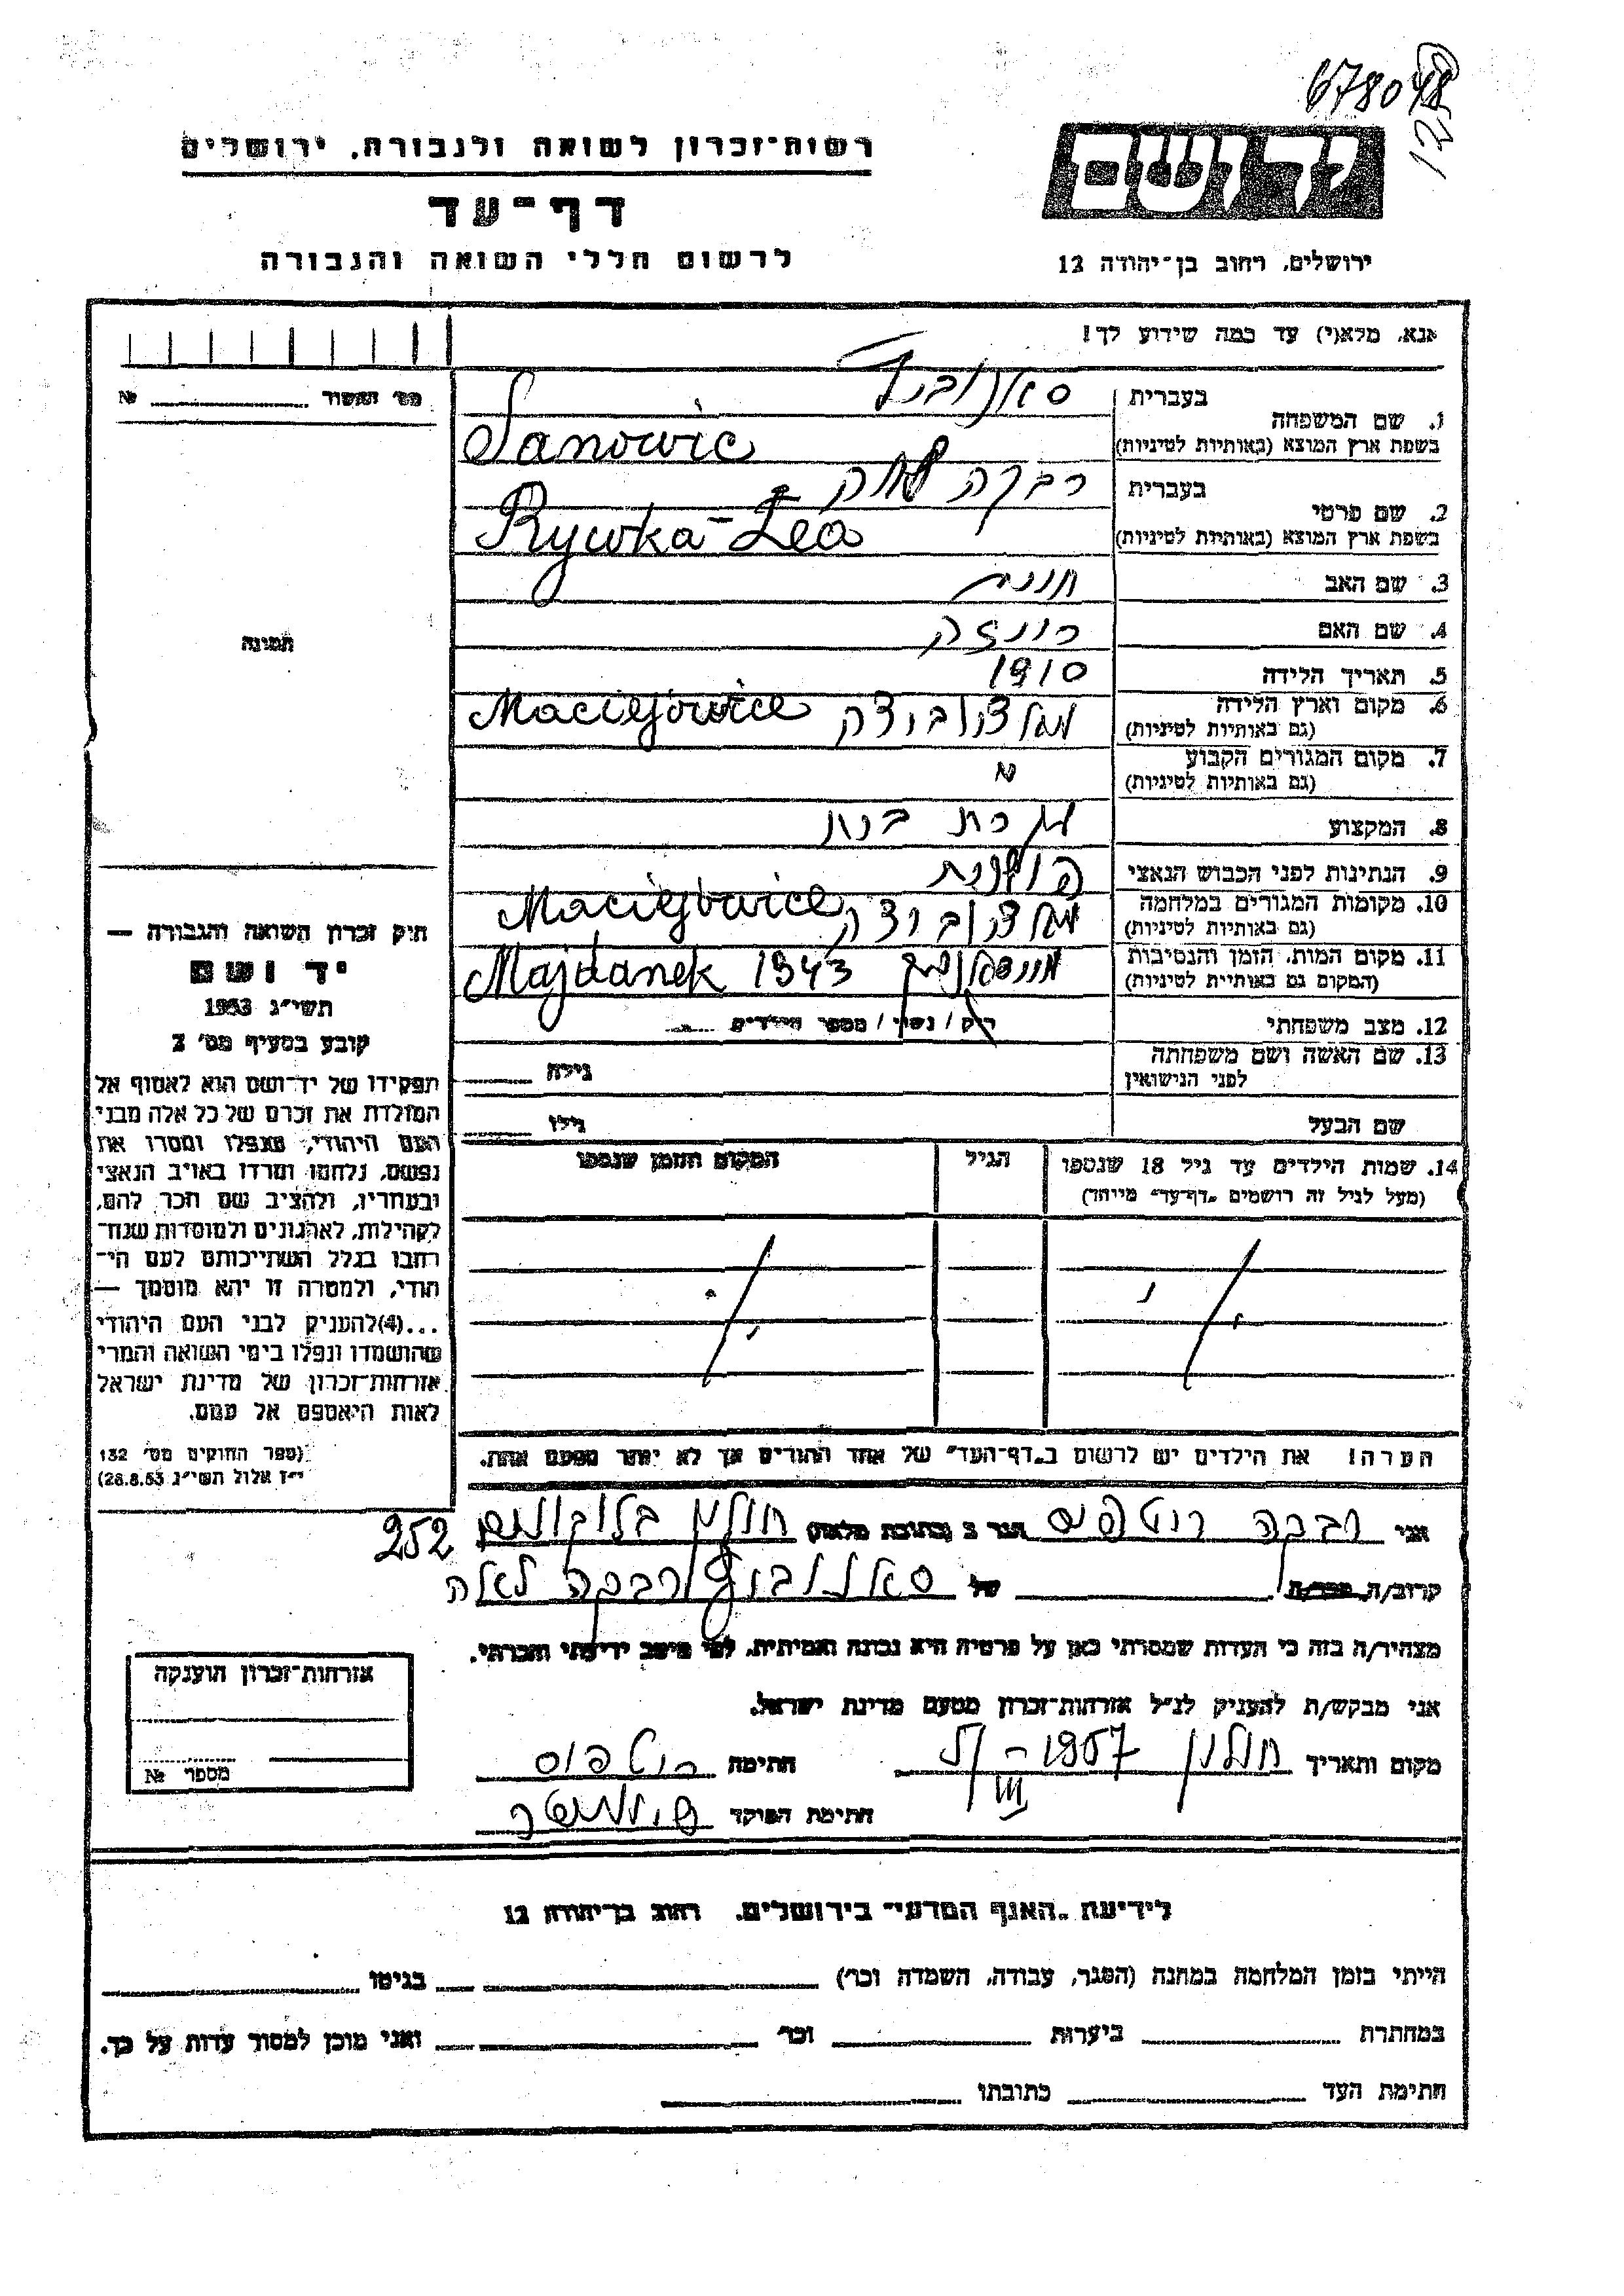 678048
125
רשות־זכרון לשואה ולגבורה, ירושלים
דף־עד
לרשום חללי השואה והגבורה
יד ושם
ירושלים, רחוב בן־יהודה 12
אנא, מלא(י) עד כמה שידוע לך!
מס' האשור № 
1. שם המשפחה
בעברית
בשפת ארץ המוצא (באותיות לטיניות)
Sanowic
2. שם פרטי
בעברית רבקה לאה
בשפת ארץ המוצא (באותיות לטיניות)
Rywka-Lea
3. שם האב
4. שם האם רויזה
5. תאריך הלידה 1910
6. מקום וארץ הלידה
(גם באותיות לטיניות)
Maciejowice
7. מקום המגורים הקבוע
(גם באותיות לטיניות)
"
8. המקצוע עקרת בית
9. הנתינות לפני הכבוש הנאצי פולנית
10. מקומות המגורים במלחמה
(גם באותיות לטיניות)
Maciejowice
11. מקום המות, הזמן והנסיבות
(המקום גם באותיות לטיניות)
מיידאנק Majdanek 1943
12. מצב משפחתי
רוק / נשוי / מספר הילדים
13. שם האשה ושם משפחתה
לפני הנישואין
גילה
שם הבעל
גילו
14. שמות הילדים עד גיל 18 שנספו
(מעל לגיל זה רושמים „דף־עד" מיוחד)
הגיל
המקום והזמן שנספו
הערה! את הילדים יש לרשום ב„דף־העד" של אחד ההורים אך לא יותר מפעם אחת.
תמונה
חוק זכרון השואה והגבורה —
יד ושם
תשי"ג 1953
קובע בסעיף מס' 2
תפקידו של יד־ושם הוא לאסוף אל
המולדת את זכרם של כל אלה מבני
העם היהודי, שנפלו ומסרו את
נפשם, נלחמו ומרדו באויב הנאצי
ובעוזריו, ולהציב שם וזכר להם,
לקהילות, לארגונים ולמוסדות שנח־
רבו בגלל השתייכותם לעם הי־
הודי, ולמטרה זו יהא מוסמך —
...(4)להעניק לבני העם היהודי
שהושמדו ונפלו בימי השואה והמרי
אזרחות־זכרון של מדינת ישראל
לאות היאספם אל עמם.
(ספר החוקים מס' 132
י"ז אלול תשי"ג 28.8.53)
אני רבקה הגר ב (כתובת מלאה) חולון 252
קרוב/ה מכר/ה של רבקה לאה
מצהיר/ה בזה כי העדות שמסרתי כאן על פרטיה היא נכונה ואמיתית, לפי מיטב ידיעתי והכרתי.
אני מבקש/ת להעניק לנ"ל אזרחות־זכרון מטעם מדינת ישראל.
מקום ותאריך חולון 1957 חתימה
חתימת הפוקד
אזרחות־זכרון הוענקה
מספר №
לידיעת „האגף המדעי" בירושלים, רחוב בן־יהודה 12
הייתי בזמן המלחמה במחנה (הסגר, עבודה, השמדה וכו') בגיטו
במחתרת ביערות וכו' ואני מוכן למסור עדות על כך.
חתימת העד כתובתו